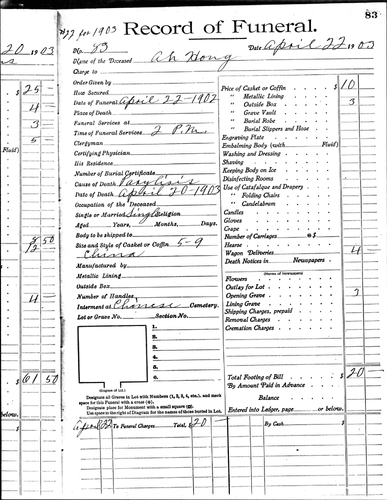 83
#77 for 1903
Record of Funeral.
No. 83
Date April 22 1903
Name of the Deceased Ah Hong
Charge to
Order Given by
How Secured
Date of Funeral April 22-1902
Place of Death
Funeral Services at
Time of Funeral Services 2 P.M.
Clergyman
Certifying Physician
His Residence
Number of Burial Certificate
Cause of Death Parylisis
Date of Death April 20-1903
Occupation of the Deceased
Single or Married Single Religion
Aged Years, Months, Days.
Body to be shipped to
Size and Style of Casket or Coffin 5-9
China
Manufactured by
Metallic Lining
Outside Box
Number of Handles
Interment at Chinese Cemetery.
Lot or Grave No. Section No.
1.
2.
3.
4.
5.
6.
(Diagram of Lot.)
Designate all Graves in Lot with Numbers (1, 2, 3, 4, etc.), and mark
space for this Funeral with a cross (+).
Designate place for Monument with a small square
Use space to the right of Diagram for the names of those buried in Lot.
Price of Casket or Coffin $ 10
" Metallic Lining
" Outside Box 3
" Grave Vault
" Burial Robe
" Burial Slippers and Hose
Engraving Plate
Embalming Body (with Fluid)
Washing and Dressing
Shaving
Keeping Body on Ice
Disinfecting Rooms
Use of Catafalque and Drapery
" Folding Chairs
" Candelabrum
Candles
Gloves
Crape
Number of Carriages @ $
Hearse
Wagon Deliveries 4
Death Notices in Newspapers
Flowers
Outlay for Lot
Opening Grave 3
Lining Grave
Shipping Charges, prepaid
Removal Charges
Cremation Charges
Total Footing of Bill $ 20
By Amount Paid in Advance
Balance
Entered into Ledger, page or below.
April 22 To Funeral Charges Total, $ 20
By Cash $
20 1903
$ 25
4
3
5
Fluid)
8 50
12
4
$ 61 50
below.